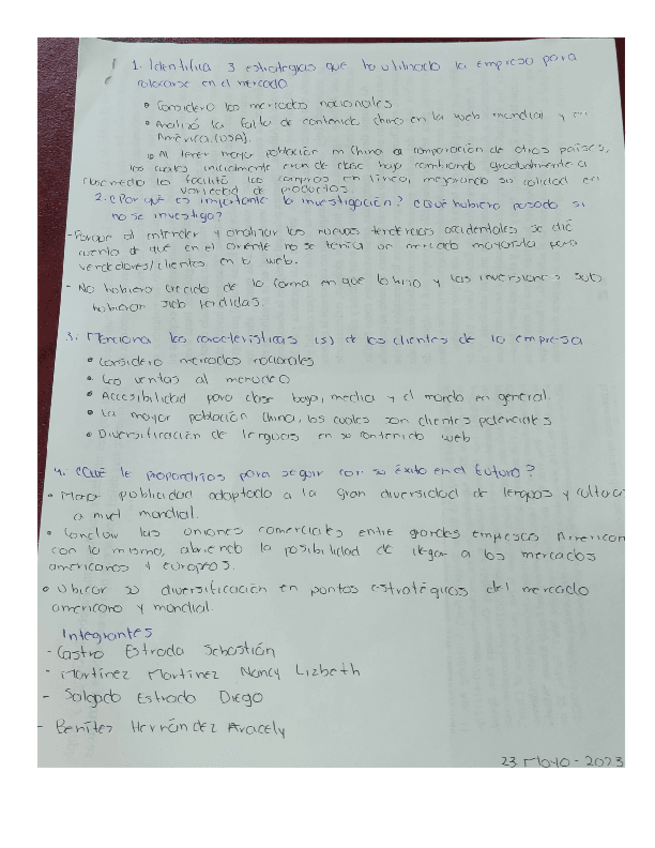 1. Identifica 3 estrategias que ha utilizado la empresa para
colocarse en el mercado
• Considero los mercados nacionales
• Analizó la falta de contenido chino en la web mundial y en
América (USA).
• Al tener mayor población en China a comparación de otros países,
los cuales inicialmente eran de clase baja cambiando gradualmente a
clase media les facilitó las compras en línea, mejorando su calidad en
variedad de productos.
2. ¿Por qué es importante la investigación? ¿Qué hubiera pasado si
no se investiga?
- Porque al entender y analizar las nuevas tendencias occidentales se dió
cuenta de que en el oriente no se tenía un mercado mayorista para
vendedores/clientes en la web.
- No hubiera crecido de la forma en que lo hizo y las inversiones solo
hubieran sido perdidas.
3. Menciona las características (5) de los clientes de la empresa
• Considero mercados nacionales
• Las ventas al menudeo
• Accesibilidad para clase baja, media y el mundo en general.
• La mayor población China, los cuales son clientes potenciales
• Diversificación de lenguas en su contenido web
4. ¿Qué le propondrías para seguir con su éxito en el futuro?
• Mayor publicidad adaptada a la gran diversidad de lenguas y cultura
a nivel mundial.
• las uniones comerciales entre grandes empresas American
con la misma, abriendo la posibilidad de llegar a los mercados
americanos y europeos.
• Ubicar su diversificación en puntos estratégicos del mercado
americano y mundial.
Integrantes
- Castro Estrada Sebastián
- Martínez Martínez Nancy Lizbeth
- Salgado Estrada Diego
- Benítes Hernández Aracely
23 Mayo - 2023